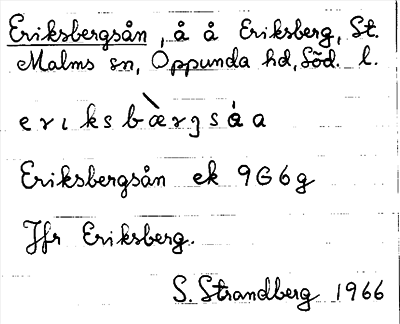 Eriksbergsån, å å Eriksberg, St.
Malms sn, Oppunda hd, Söd. l.
erıksbæ̀rgsåa
Eriksbergsån ek 9G6g
Jfr Eriksberg.
S. Strandberg 1966